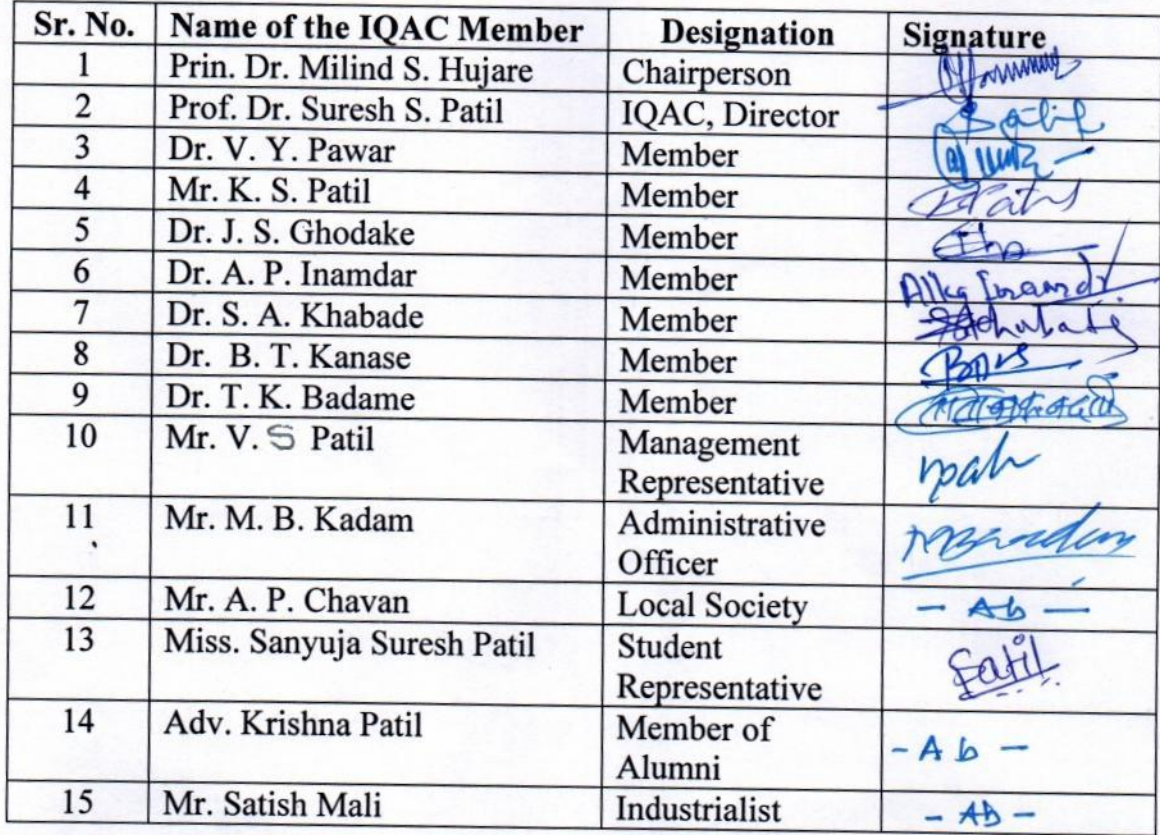 Sr. No. Name of the IQAC Member Designation Signature
1 Prin. Dr. Milind S. Hujare Chairperson
2 Prof. Dr. Suresh S. Patil IQAC, Director
3 Dr. V. Y. Pawar Member
4 Mr. K. S. Patil Member
5 Dr. J. S. Ghodake Member
6 Dr. A. P. Inamdar Member
7 Dr. S. A. Khabade Member
8 Dr. B. T. Kanase Member
9 Dr. T. K. Badame Member
10 Mr. V. S Patil Management
Representative
11 Mr. M. B. Kadam Administrative
Officer
12 Mr. A. P. Chavan Local Society - Ab -
13 Miss. Sanyuja Suresh Patil Student Patil
Representative
14 Adv. Krishna Patil Member of - Ab -
Alumni
15 Mr. Satish Mali Industrialist - Ab -